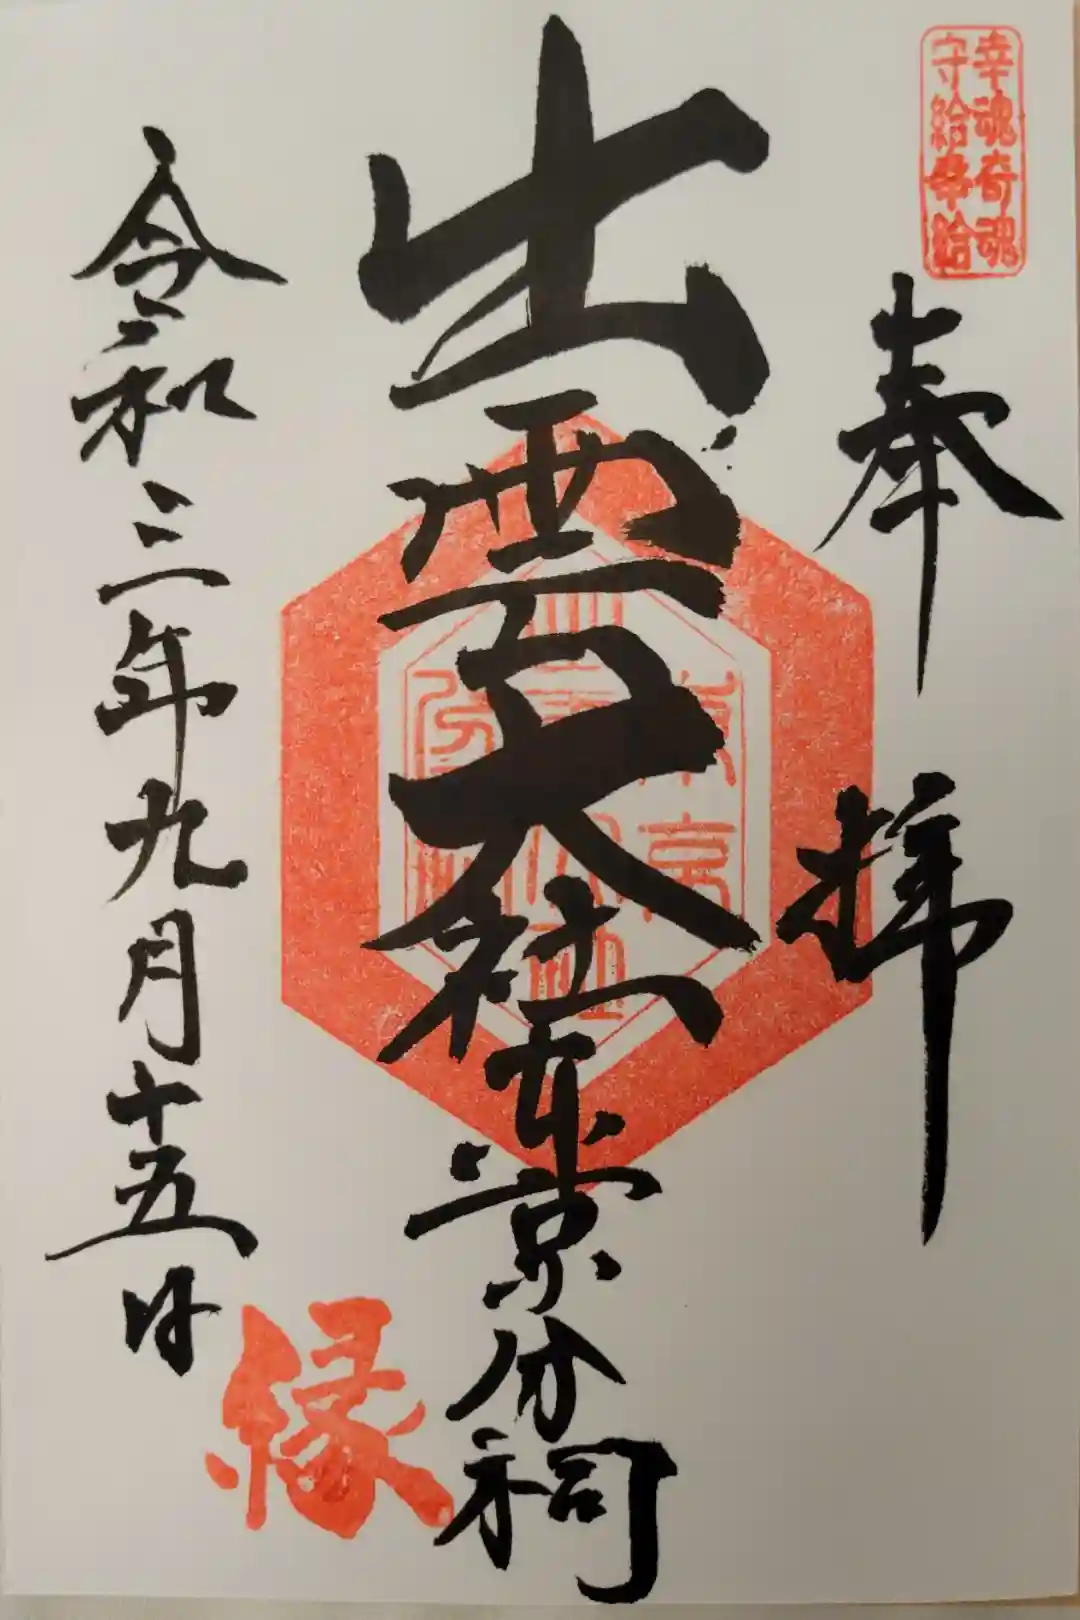 幸魂奇魂
守給幸給
奉拝
出雲大社東京分祠
東京
令和三年九月十五日
縁